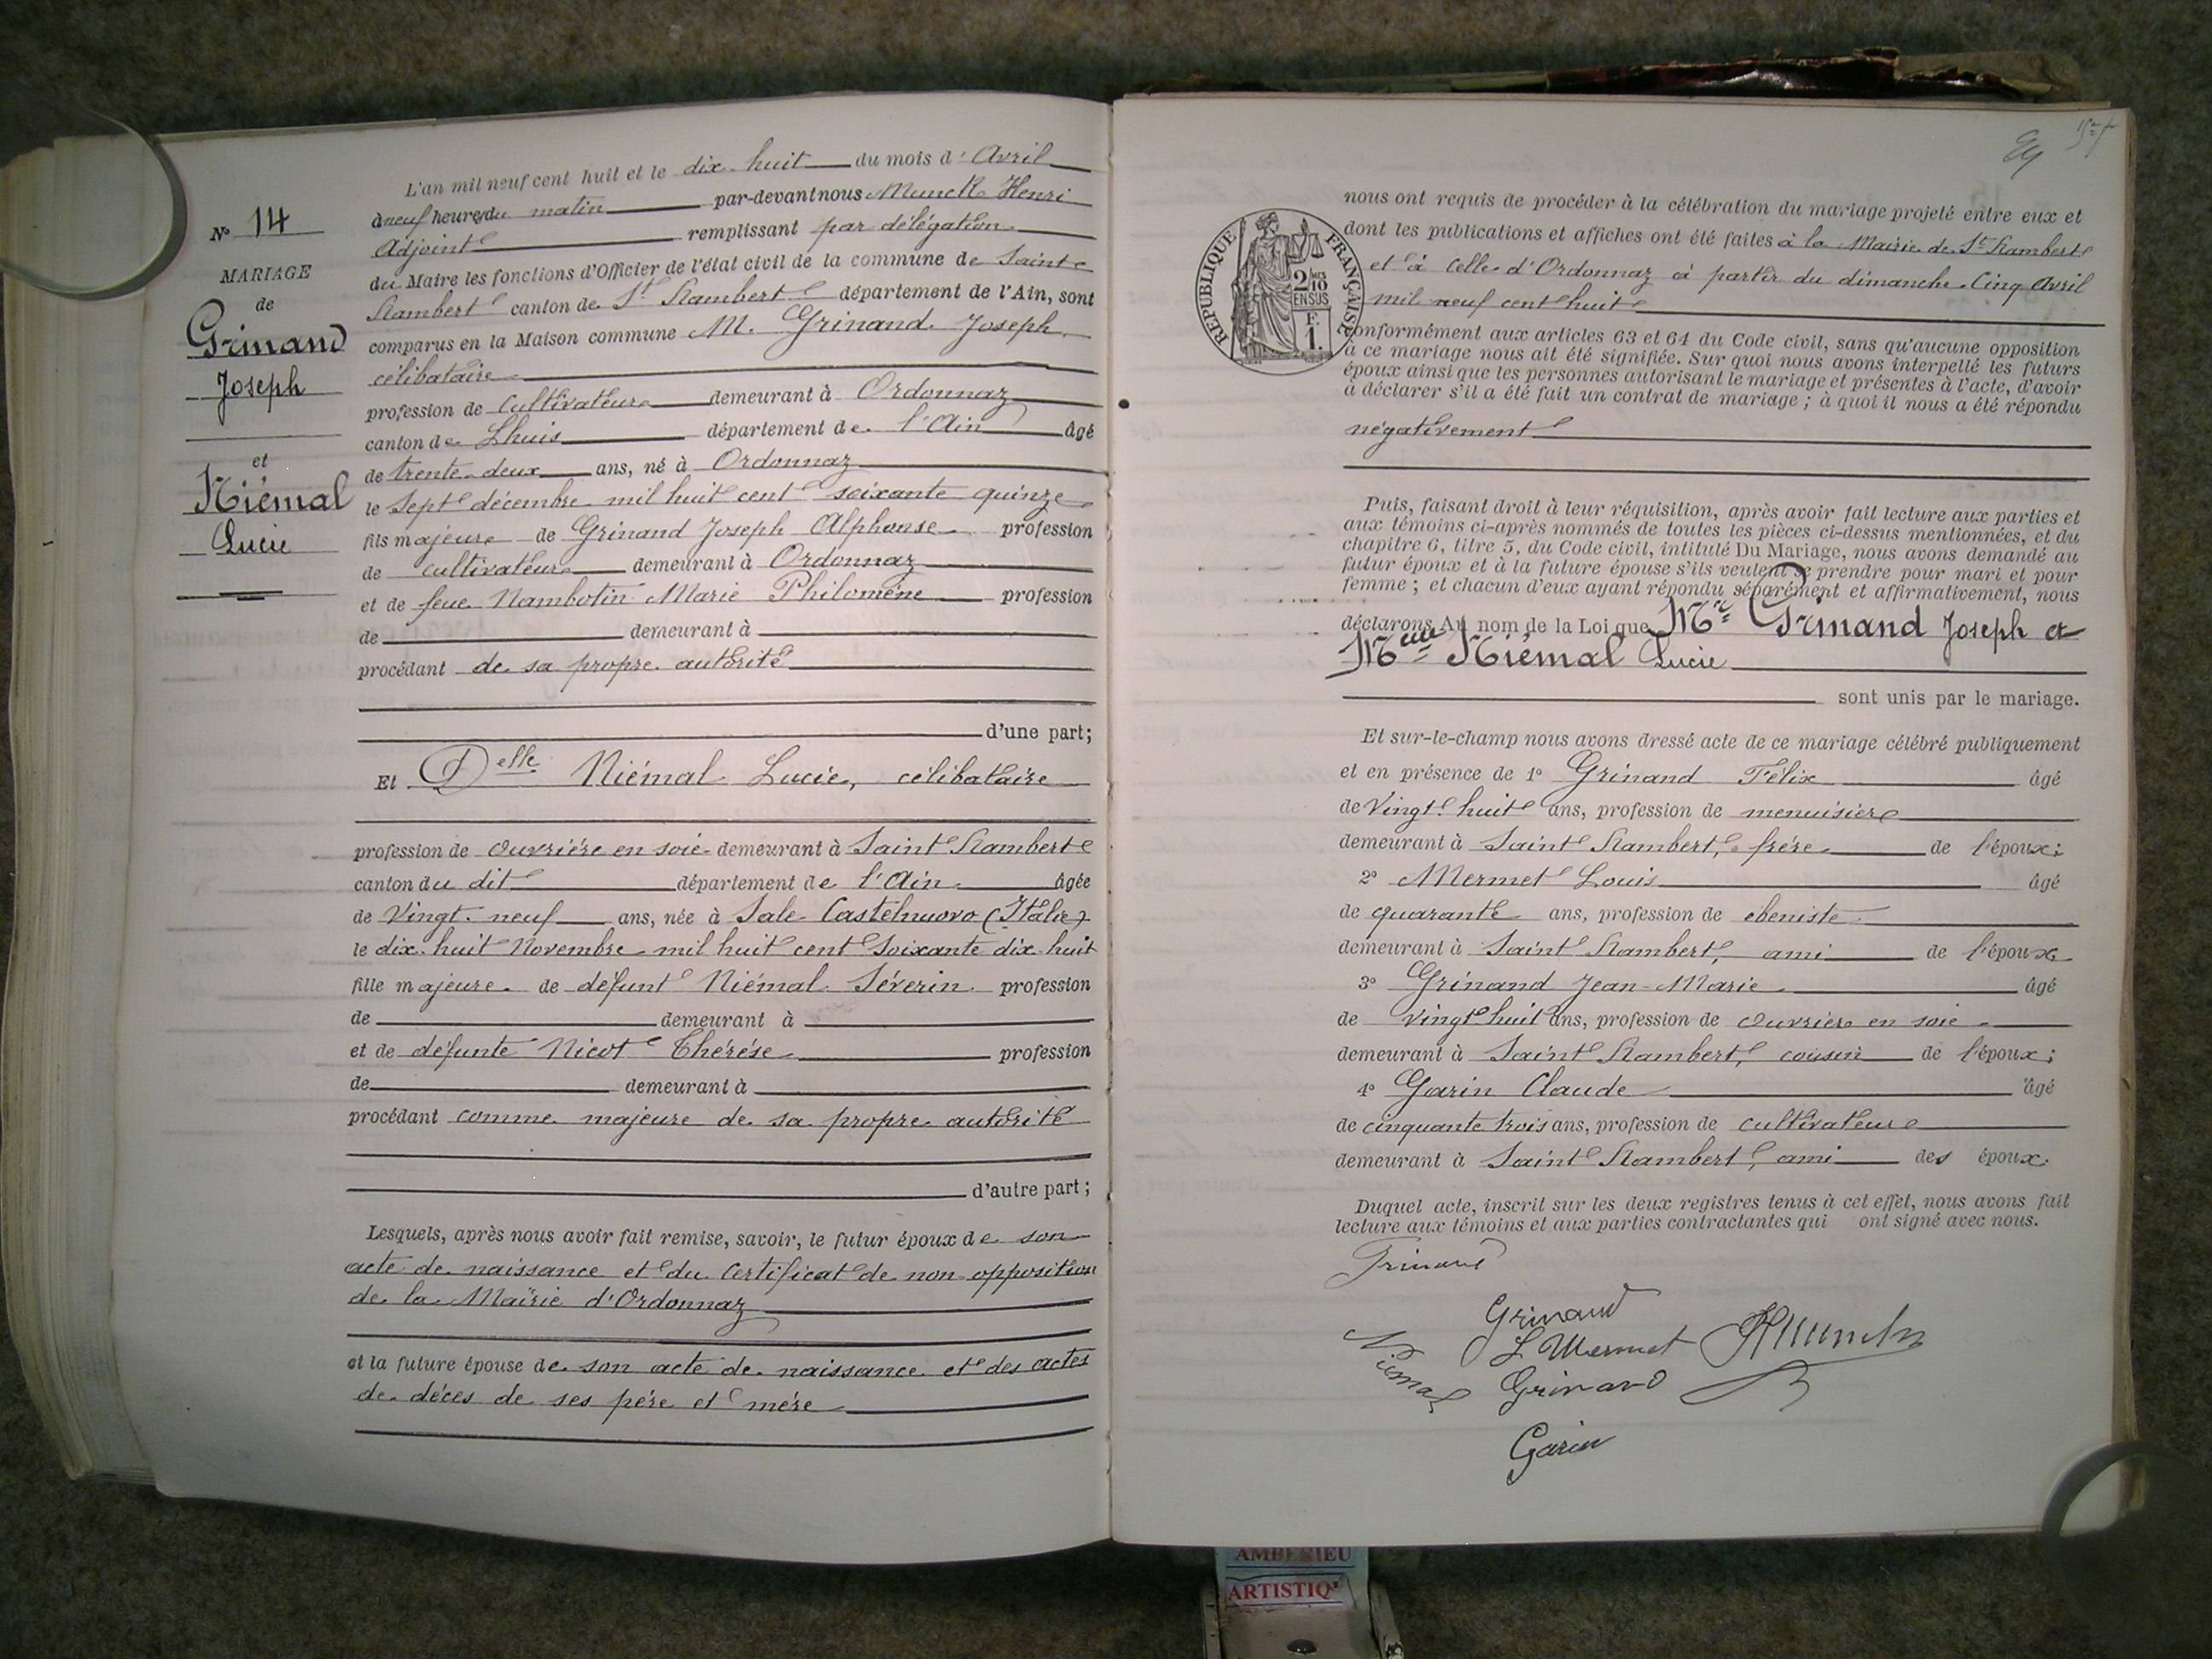 N° 14
MARIAGE
de
Grinand
Joseph
et
Niémal
Lucie
L'an mil neuf cent huit et le dix-huit du mois d'Avril
à neuf heures du matin par-devant nous Munck Henri
Adjoint remplissant par délégation
du Maire les fonctions d'Officier de l'état civil de la commune de Saint
Rambert canton de St Rambert département de l'Ain, sont
comparus en la Maison commune M. Grinand Joseph,
célibataire
profession de cultivateur demeurant à Ordonnaz
canton de Lhuis département de l'Ain âgé
de trente-deux ans, né à Ordonnaz
le Sept décembre mil huit cent soixante quinze
fils majeur de Grinand Joseph Alphonse profession
de cultivateur demeurant à Ordonnaz
et de feue Nambotin Marie Philomène profession
de demeurant à
procédant de sa propre autorité
d'une part;
Et Delle Niémal Lucie, célibataire
profession de ouvrière en soie demeurant à Saint Rambert
canton du dit département de l'Ain âgée
de vingt-neuf ans, née à Sale Castelnuovo (Italie)
le dix-huit Novembre mil huit cent soixante dix-huit
fille majeure de défunt Niémal Séverin profession
de demeurant à
et de défunte Nicot Thérèse profession
de demeurant à
procédant comme majeure de sa propre autorité
d'autre part;
Lesquels, après nous avoir fait remise, savoir, le futur époux de son
acte de naissance et du certificat de non opposition
de la Mairie d'Ordonnaz
et la future épouse de son acte de naissance et des actes
de décès de ses père et mère
RÉPUBLIQUE FRANÇAISE
2/10
EN SUS
F.
1.
nous ont requis de procéder à la célébration du mariage projeté entre eux et
dont les publications et affiches ont été faites à la Mairie de St Rambert
et à celle d'Ordonnaz à partir du dimanche cinq avril
mil neuf cent huit
conformément aux articles 63 et 64 du Code civil, sans qu'aucune opposition
à ce mariage nous ait été signifiée. Sur quoi nous avons interpellé les futurs
époux ainsi que les personnes autorisant le mariage et présentes à l'acte, d'avoir
à déclarer s'il a été fait un contrat de mariage; à quoi il nous a été répondu
négativement
Puis, faisant droit à leur réquisition, après avoir fait lecture aux parties et
aux témoins ci-après nommés de toutes les pièces ci-dessus mentionnées, et du
chapitre 6, titre 5, du Code civil, intitulé Du Mariage, nous avons demandé au
futur époux et à la future épouse s'ils veulent se prendre pour mari et pour
femme; et chacun d'eux ayant répondu séparément et affirmativement, nous
déclarons Au nom de la Loi que Mr Grinand Joseph et
Melle Niémal Lucie
sont unis par le mariage.
Et sur-le-champ nous avons dressé acte de ce mariage célébré publiquement
et en présence de 1° Grinand Félix âgé
de vingt-huit ans, profession de menuisier
demeurant à Saint Rambert, frère de l'époux;
2° Mermet Louis âgé
de quarante ans, profession de ébeniste
demeurant à Saint Rambert, ami de l'époux
3° Grinand Jean-Marie âgé
de vingt huit ans, profession de ouvrier en soie
demeurant à Saint Rambert, cousin de l'époux;
4° Garin Claude âgé
de cinquante trois ans, profession de cultivateur
demeurant à Saint Rambert, ami des époux.
Duquel acte, inscrit sur les deux registres tenus à cet effet, nous avons fait
lecture aux témoins et aux parties contractantes qui ont signé avec nous.
Grinand
Grinand
Niemal
L Mermet
HMunck
Grinand
Garin
AMBERIEU
ARTISTIQ